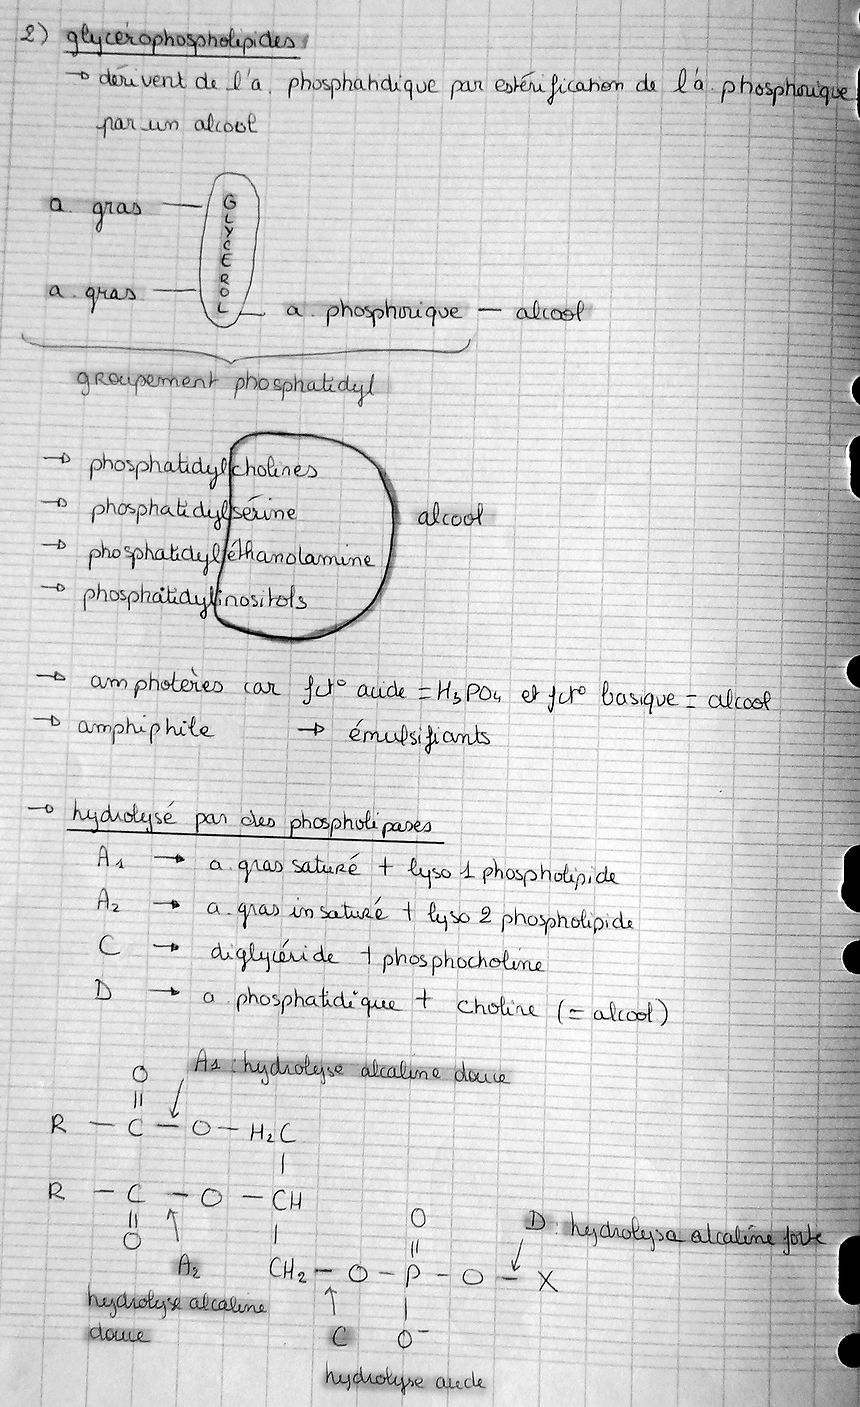 2) glycérophospholipides
→ dérivent de l'a. phosphatidique par estérification de l'a. phosphorique
par un alcool
a. gras — GLYCEROL
a. gras —
a. phosphorique — alcool
groupement phosphatidyl
→ phosphatidylcholines
→ phosphatidylsérine alcool
→ phosphatidyléthanolamine
→ phosphatidylinositols
→ amphotères car fct° acide = H3PO4 et fct° basique = alcool
→ amphiphile → émulsifiants
→ hydrolysé par des phospholipases
A1 → a. gras saturé + lyso 1 phospholipide
A2 → a. gras insaturé + lyso 2 phospholipide
C → diglycéride + phosphocholine
D → a. phosphatidique + choline (= alcool)
A1 : hydrolyse alcaline douce
O
||
R — C — O — H2C
|
R — C — O — CH
|| | O D : hydrolyse alcaline forte
O ||
A2 CH2 — O — P — O — X
hydrolyse alcaline |
douce C O-
hydrolyse acide